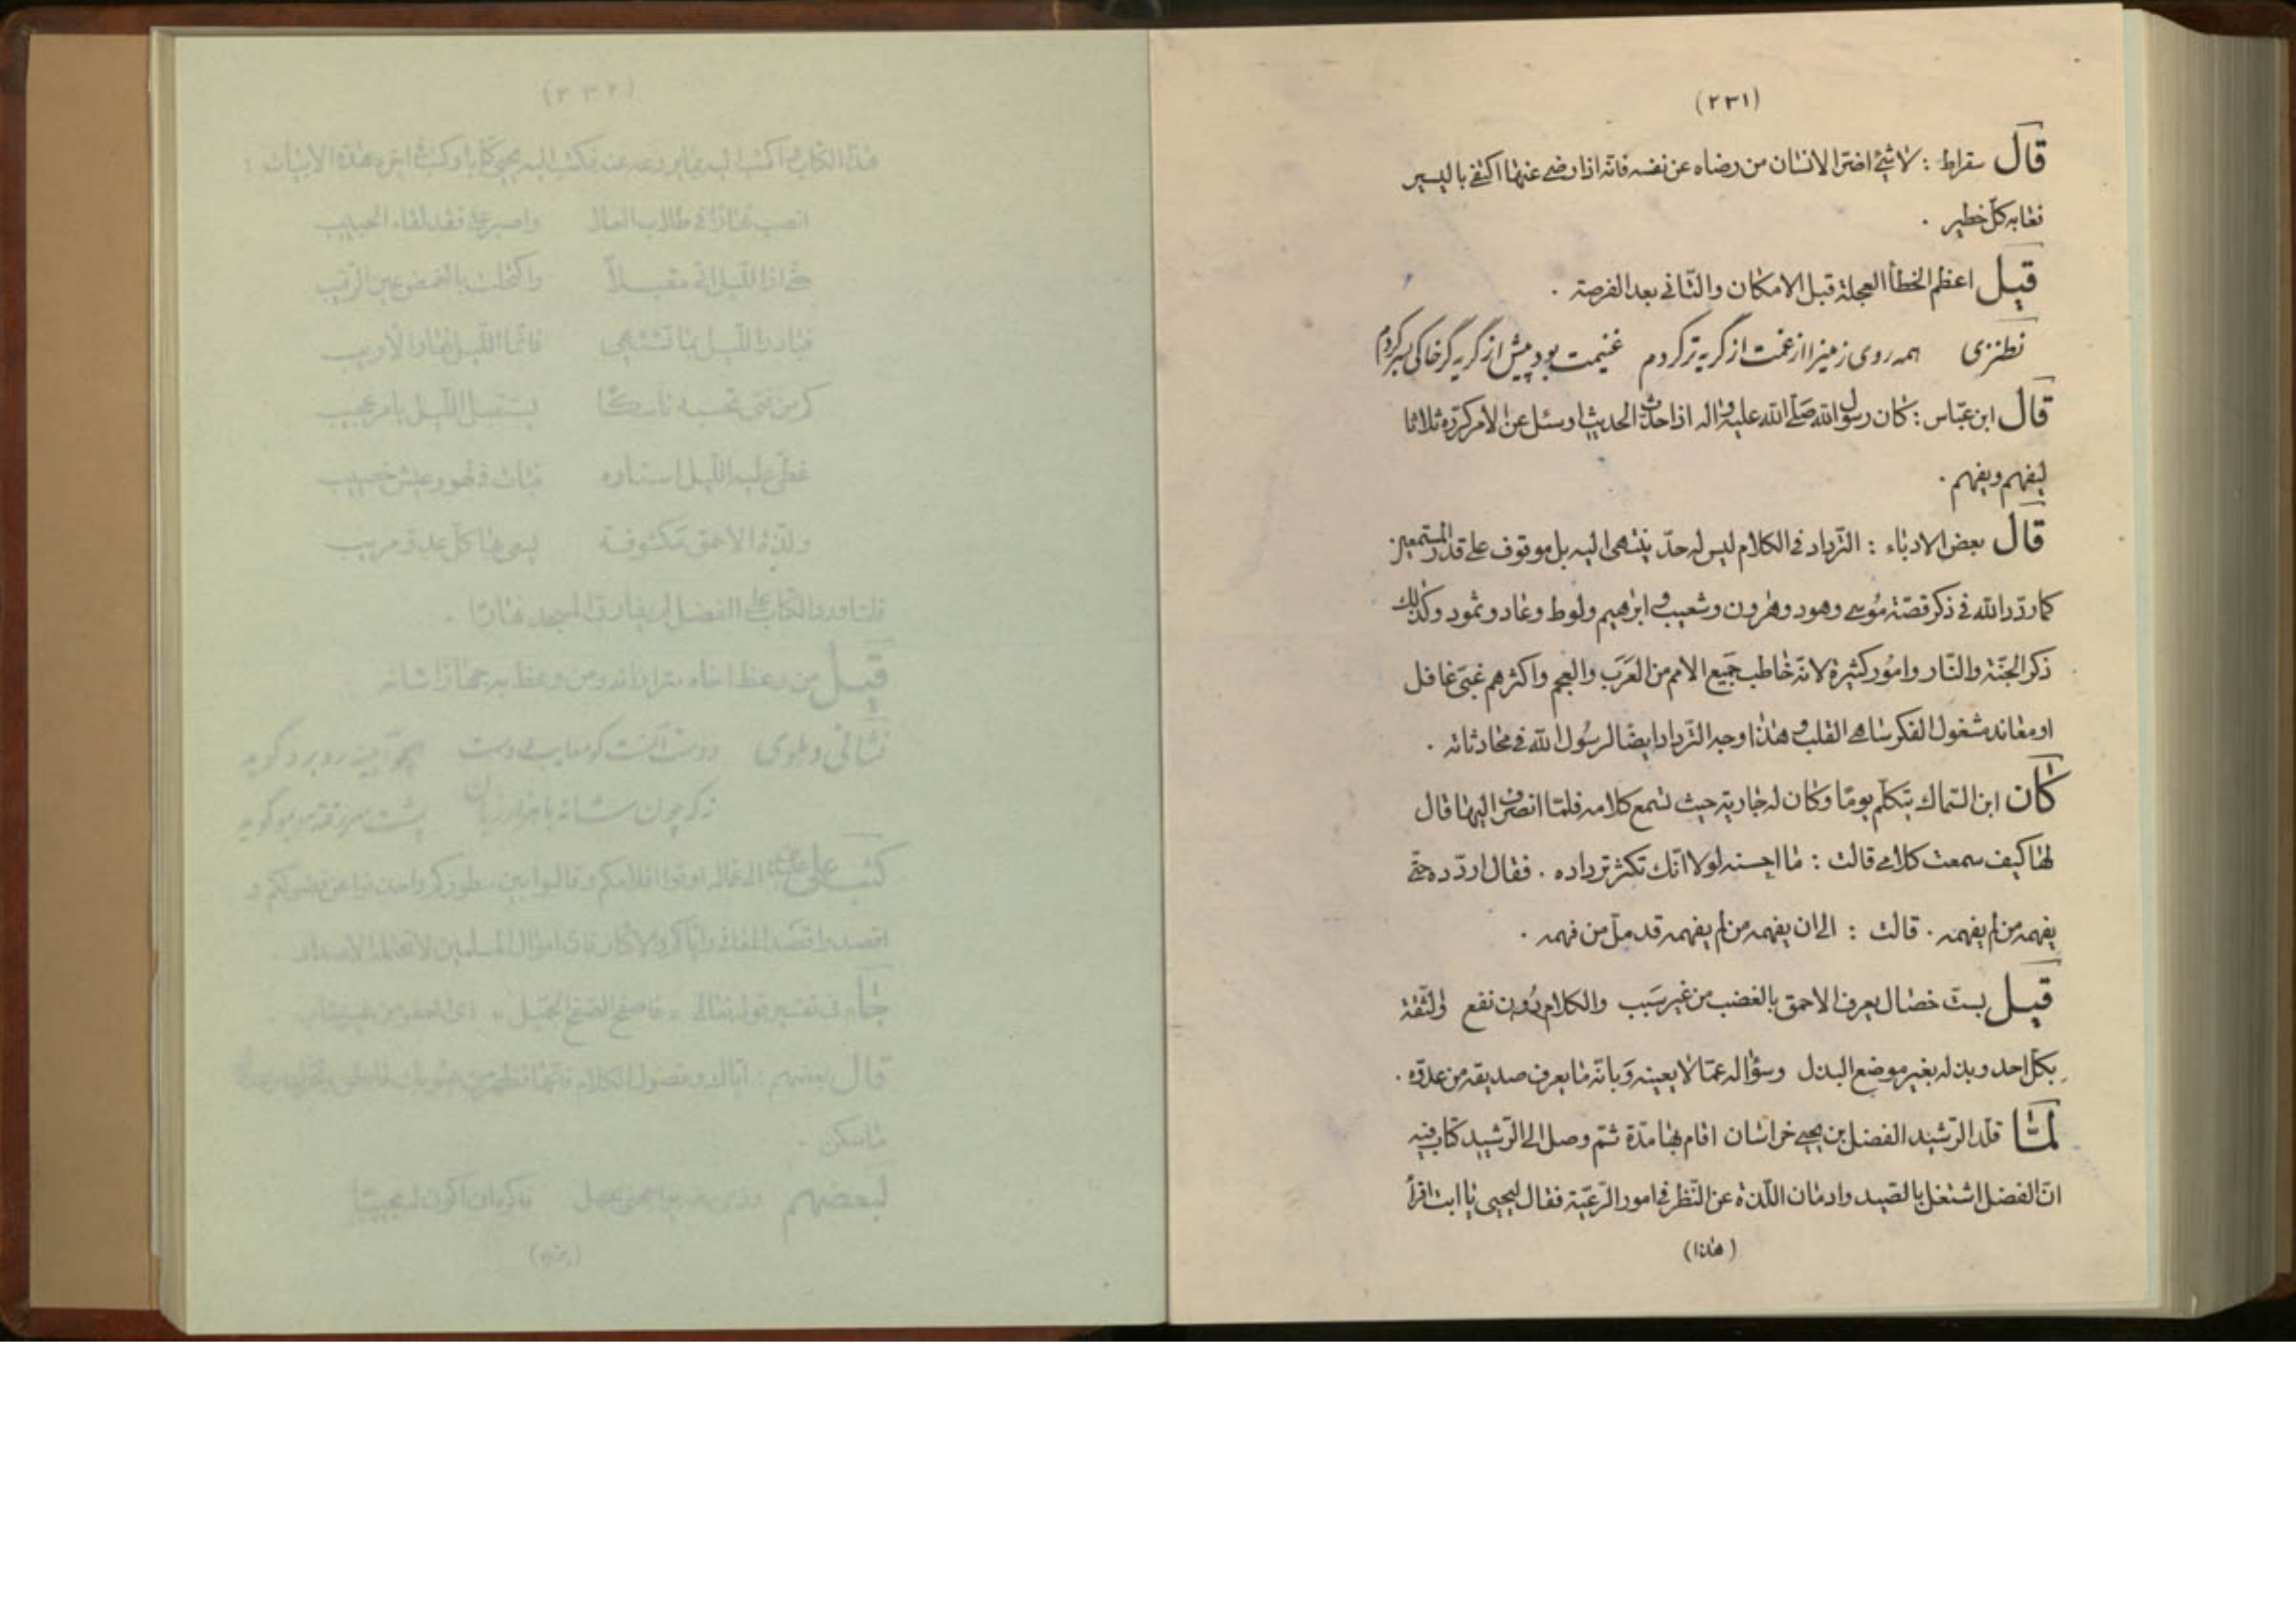 (٢٣١)
قال سقراط : لا شئ اضرّ الانسان من رضاه عن نفسه فانّه اذا رضى عنها اكتفى باليسير
فعابه كلّ خطير .
قيل اعظم الخطأ العجلة قبل الامكان والتّانى بعد الفرصة .
نطنزى همه روى زمينرا از غمت از گريه تر كردم غنيمت بود پيش از گريه گر خاكى بسر كردم
قال ابن عبّاس : كان رسول الله صلّى الله عليه واله اذا حدّث الحديث او سئل عن الامر كرّره ثلاثا
ليفهم ويفهم .
قال بعض الادباء : التّرداد فى الكلام ليس له حدّ ينتهى اليه بل موقوف على قدر المستمعين
كما ردّد الله فى ذكر قصّة موسى وهود وهرون وشعيب و ابرهيم ولوط وعاد وثمود وكذلك
ذكر الجنّة والنّار وامور كثيرة لانّه خاطب جميع الامم من العرب والعجم واكثرهم غبىّ غافل
او معاند مشغول الفكر ساهى القلب و هذا وجه التّرداد ايضا لرسول الله فى محادثاته .
كان ابن السّماك يتكلّم يومًا وكان له جارية حيث تسمع كلامه فلمّا انصرف اليها قال
لها كيف سمعت كلامى قالت : ما احسنه لولا انّك تكثر ترداده . فقال اردّده حتّى
يفهمه من لم يفهمه . قالت : الى ان يفهمه من لم يفهمه قد ملّ من فهمه .
قيل بستّ خصال يعرف الاحمق بالغضب من غير سبب والكلام دون نفع والثّقة
بكلّ احد وبذله بغير موضع البذل وسؤاله عمّا لا يعينه وبانّه ما يعرف صديقه من عدوّه .
لمّا قلّد الرّشيد الفضل بن يحيى خراسان اقام بها مدّة ثمّ وصل الى الرّشيد كتاب فيه
انّ الفضل اشتغل بالصّيد وادمان اللّذة عن النّظر فى امور الرّعيّة فقال ليحيى يا ابت اقرأ
(هذا)
(٢٣٢)
هذا الكتاب و اكتب اليه بما يردعه عنه فكتب اليه يحيى كتابا وكتب فى اخره هذه الابيات :
انصب نهارًا فى طلاب العلا واصبر على فقد لقاء الحبيب
حتّى اذا اللّيل اتى مقبلاً واكتحلت بالغمض عين الرّقيب
فبادر اللّيل بما تشتهى فانّما اللّيل نهار الاريب
كم من فتى تحسبه ناسكًا يستقبل اللّيل بامر عجيب
غطّى عليه اللّيل استاره فبات فى لهو وعيش خصيب
ولذّة الاحمق مكشوفة يسعى بها كلّ عدوّ مريب
فلمّا ورد الكتاب على الفضل لم يفارق المسجد نهارًا .
قيل من وعظ اخاه سرًا زانه ومن وعظ به جهارًا شانه
دوست آنست كو معايب دوست همچو آيينه روبرو گويد
نه كه چون شانه با هزار زبان پشت سر رفته مو بمو گويد
كتب على الى عمّاله ادقّوا اقلامكم وقاربوا بين سطوركم واحذفوا عن فضولكم و
اقصدوا قصد المعانى وايّاكم والاكثار فانّ اموال المسلمين لا تحتمل
جاء فى تفسير قوله تعالى « فاصفح الصّفح الجميل » اى
قال بعضهم : ايّاك وفضول الكلام فانّها تظهر من عيوبك ما بطن وتحرّك من عدوّك
ما سكن .
لبعضهم